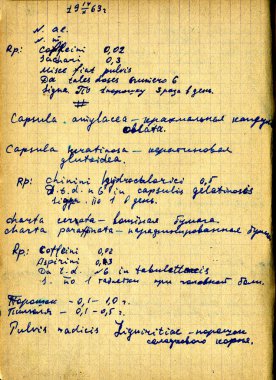 19 IV/5 63 г
N. ac.
N.
Rp: Coffeini 0,02
Sachari 0,3
Misce fiat pulvis
Da tales doses numero 6
Signa. По 1 порошку 3 раза в день.
#
Capsula amylacea – крахмальная капсула
oblata.
Capsula keratinosa – кератиновая
glutoidea.
Rp: Chinini hydrochlorici 0,5
D.t.d. n 6 in capsulis gelatinosis
Signa. По 1 в день.
charta cerata – вощёная бумага.
charta paraffinata –
Rp: Coffeini 0,02
Aspirini 0,3
Da t.d. №6 in tabulettis
S. по 1 таблетке при головной боли.
Порошок – 0,1 – 1,0 г.
Пилюля – 0,1 – 0,5 г.
Pulvis radicis Liquiritiae – порошок
солодкового корня.